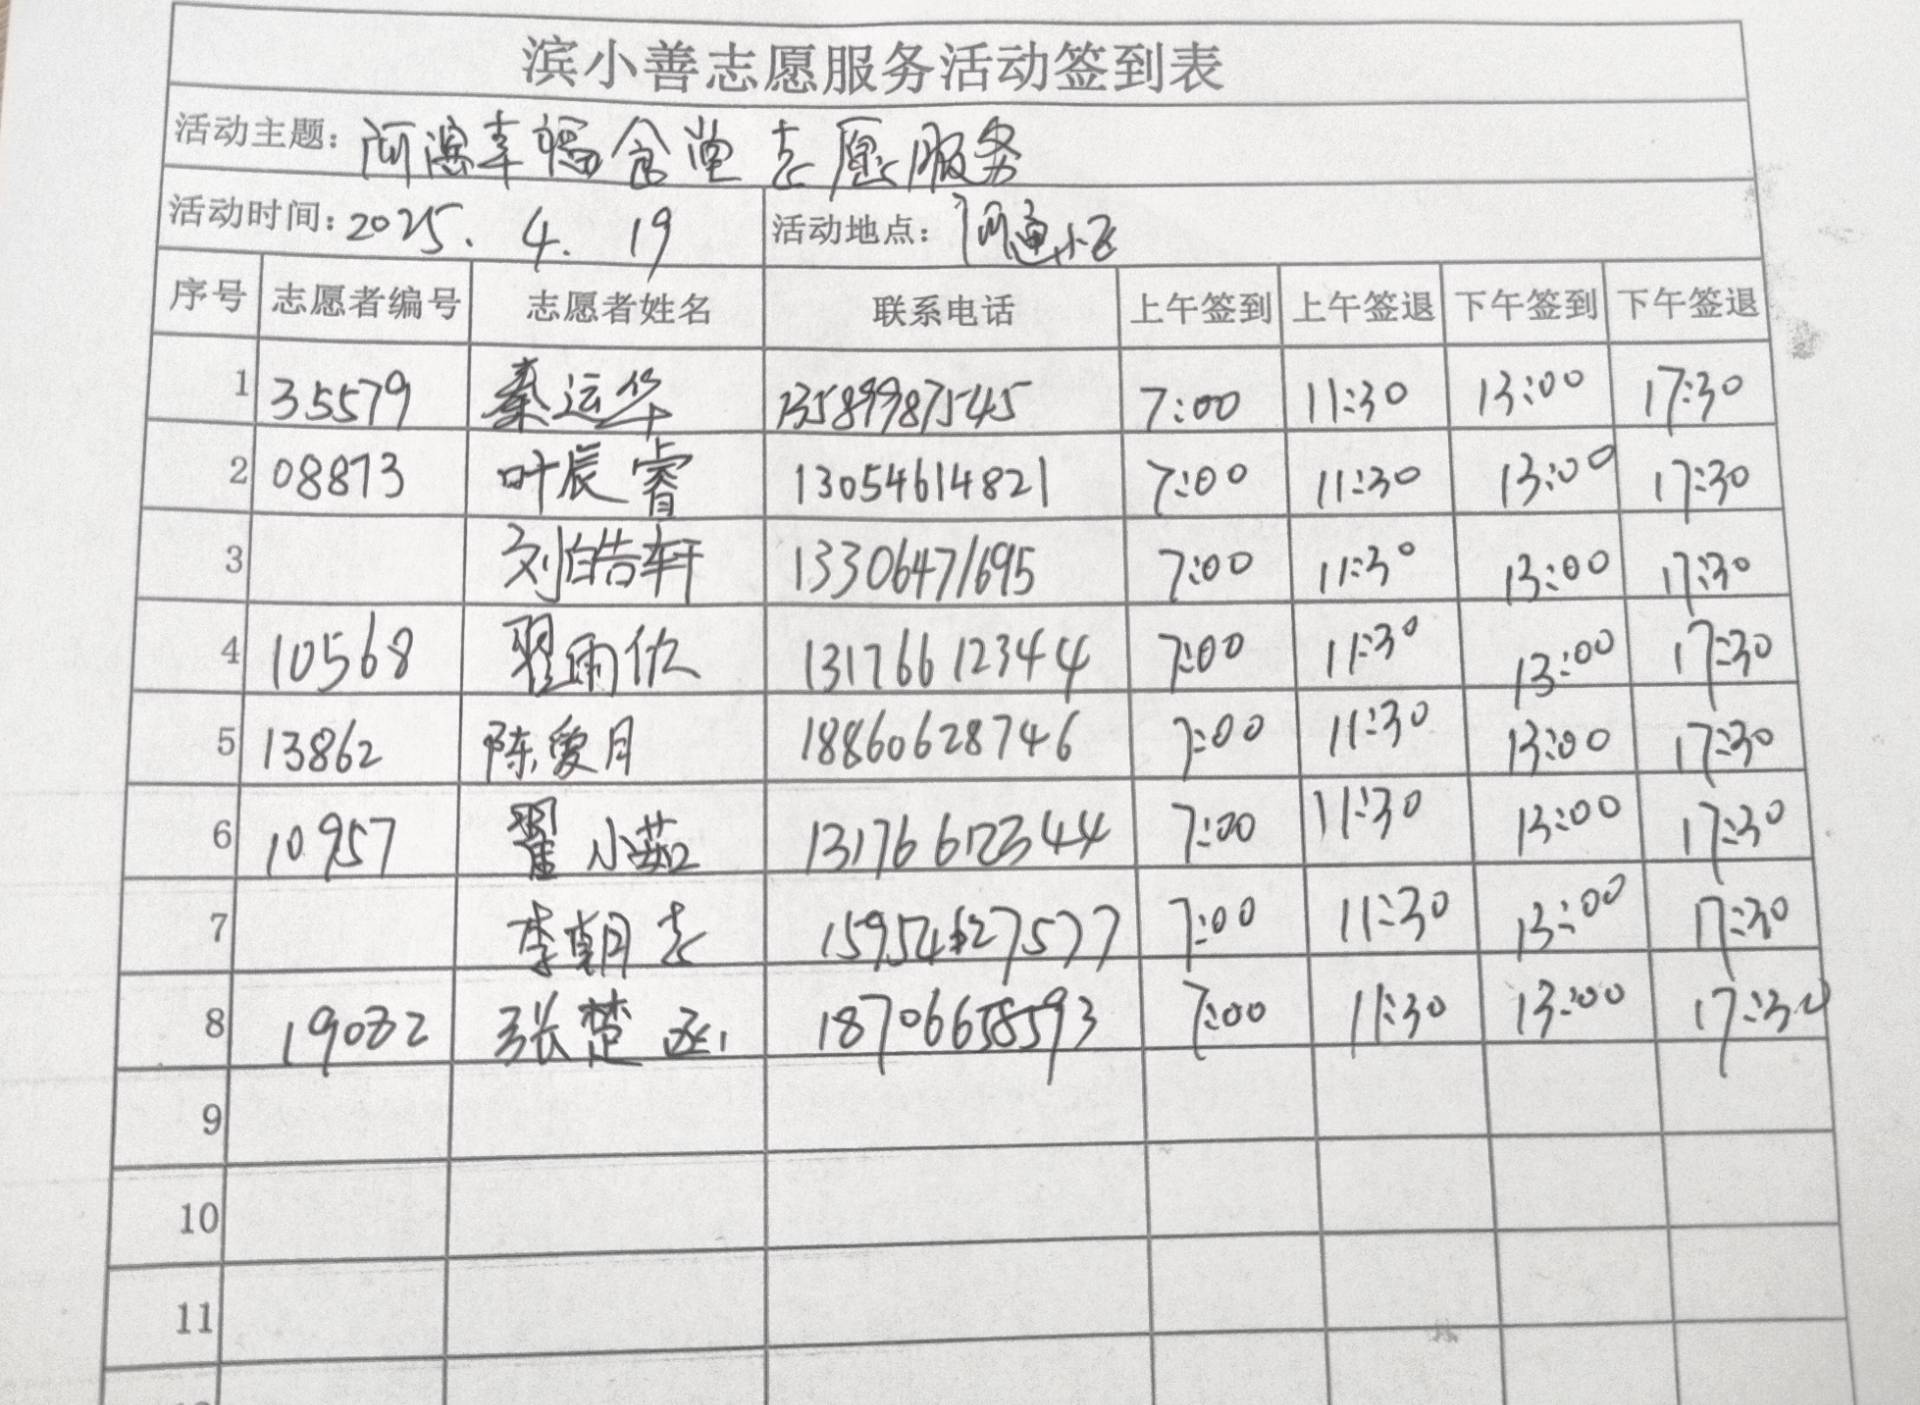 滨小善志愿服务活动签到表
活动主题：河滨幸福食堂志愿服务
活动时间：2025.4.19 活动地点：河通小区
序号 志愿者编号 志愿者姓名 联系电话 上午签到 上午签退 下午签到 下午签退
1 35579 秦运华 13589987545 7:00 11:30 13:00 17:30
2 08873 叶辰睿 13054614821 7:00 11:30 13:00 17:30
3 刘皓轩 13306471695 7:00 11:30 13:00 17:30
4 10568 翟雨 13176612344 7:00 11:30 13:00 17:30
5 13862 陈爱月 18860628746 7:00 11:30 13:00 17:30
6 10957 翟小茹 13176612344 7:00 11:30 13:00 17:30
7 李朝志 7:00 11:30 13:00 17:30
8 张楚 18706658593 7:00 11:30 13:00 17:30
9
10
11